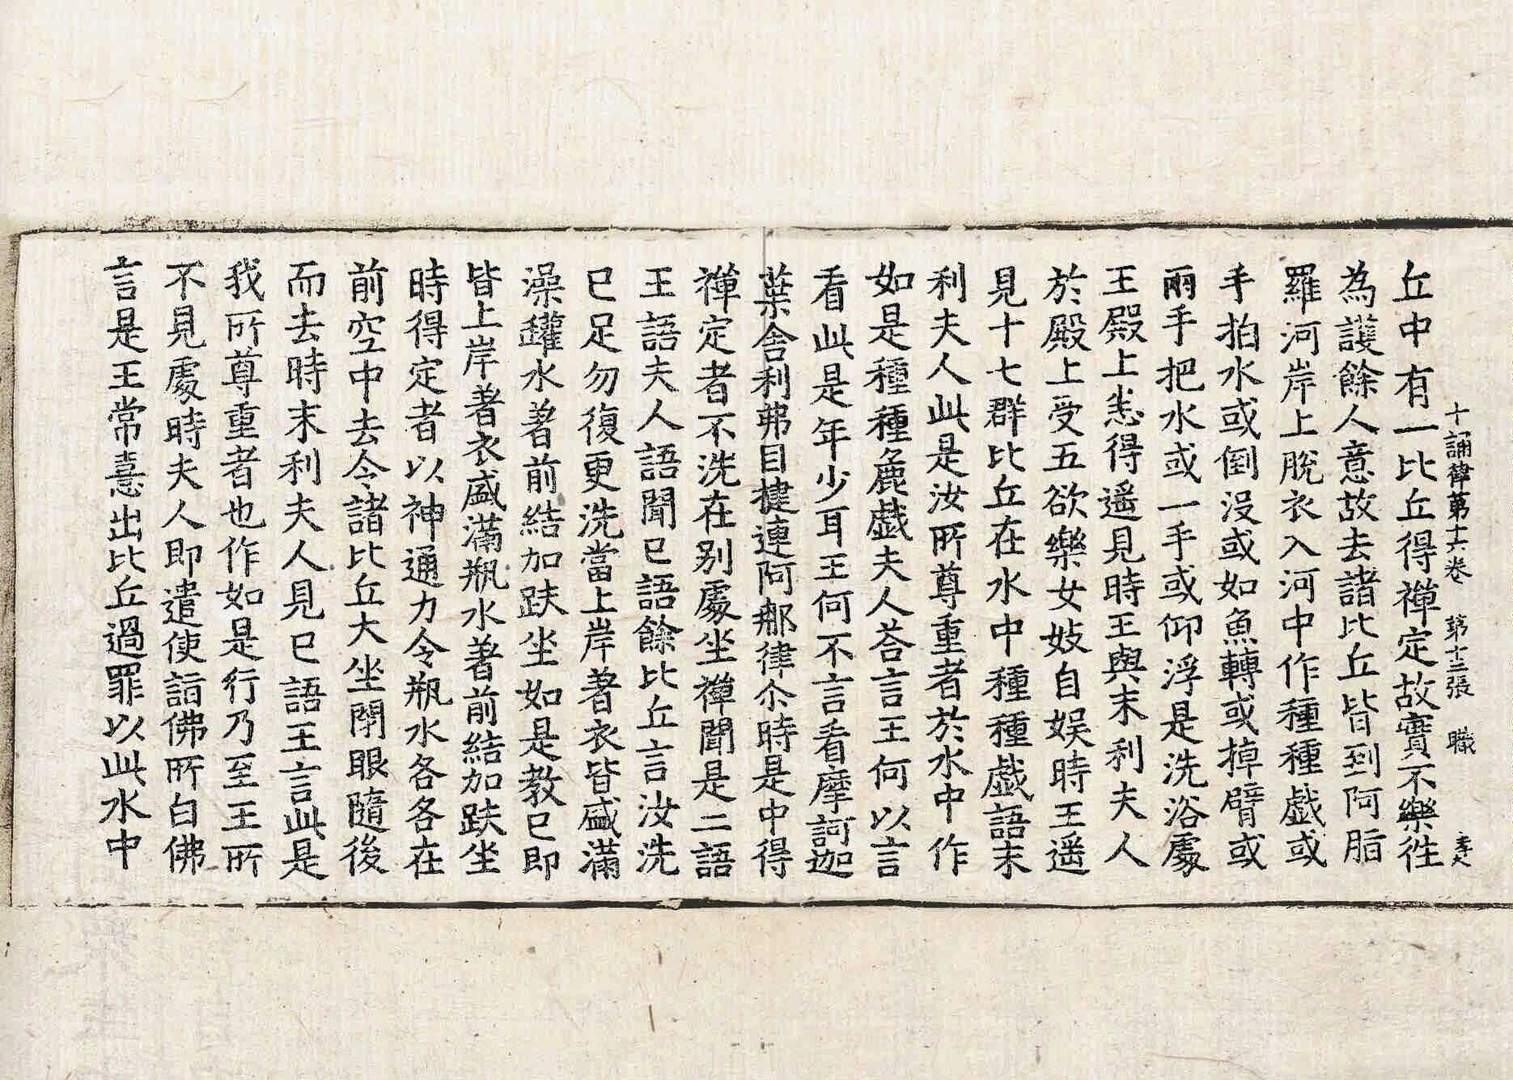 十誦律第十六卷 第十三張 職
丘中有一比丘得禪定故實不樂往
為護餘人意故去諸比丘皆到阿脂
羅河岸上脫衣入河中作種種戲或
手拍水或倒沒或如魚轉或掉臂或
兩手把水或一手或仰浮是洗浴處
王殿上悉得遙見時王與末利夫人
於殿上受五欲樂女妓自娛時王遙
見十七群比丘在水中種種戲語末
利夫人此是汝所尊重者於水中作
如是種種麁戲夫人荅言王何以言
看此是年少耳王何不言看摩訶迦
葉舍利弗目揵連阿那律尒時是中得
禪定者不洗在別處坐禪聞是二語
王語夫人語聞已語餘比丘言汝洗
已足勿復更洗當上岸著衣皆盛滿
澡鑵水著前結加趺坐如是教已即
皆上岸著衣盛滿瓶水著前結加趺坐
時得定者以神通力令瓶水各各在
前空中去令諸比丘大坐閉眼隨後
而去時末利夫人見已語王言此是
我所尊重者也作如是行乃至王所
不見處時夫人即遣使詣佛所白佛
言是王常憙出比丘過罪以此水中